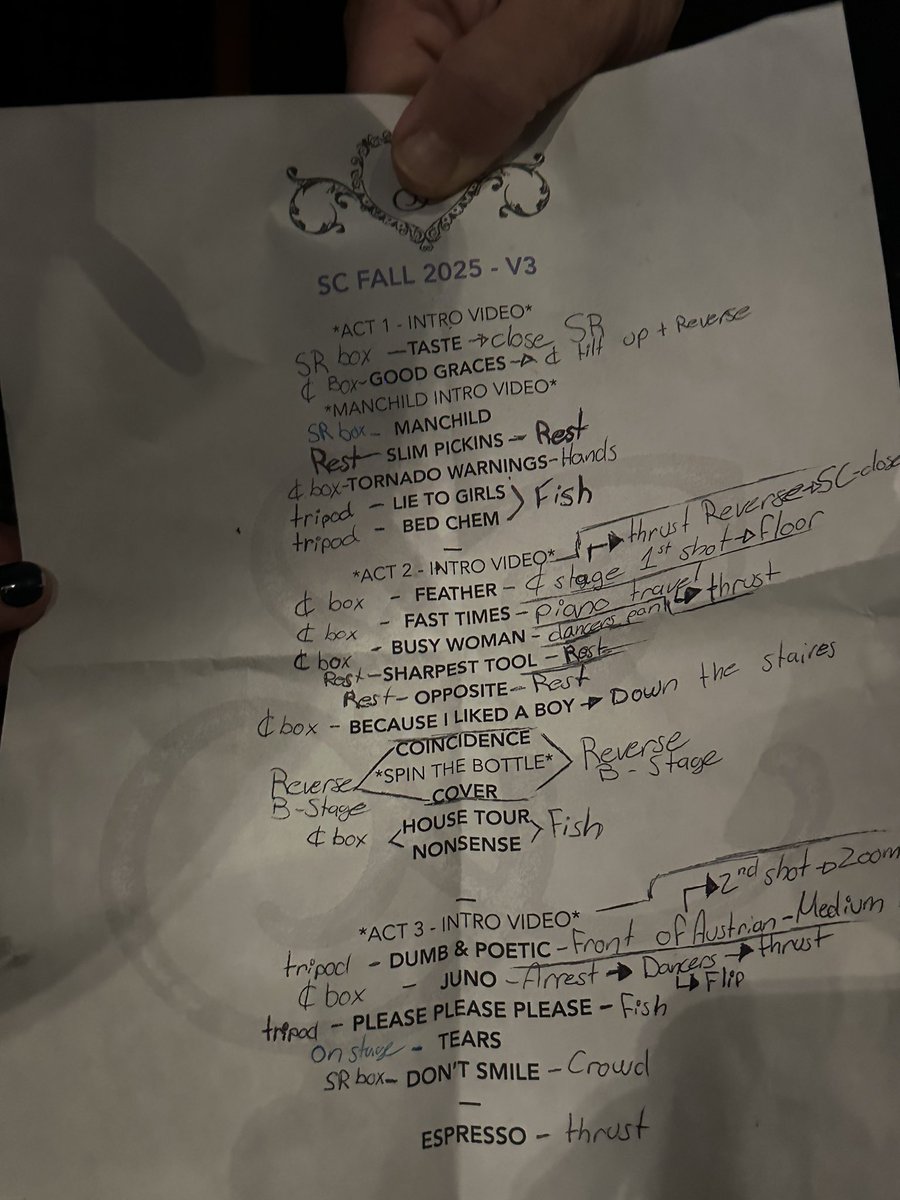 SC FALL 2025 - V3
*ACT 1 - INTRO VIDEO*
SR box - TASTE → close SR
₵ Box - GOOD GRACES → ₵ tilt up + Reverse
*MANCHILD INTRO VIDEO*
SR box - MANCHILD
Rest - SLIM PICKINS - Rest
₵ box - TORNADO WARNINGS - Hands
tripod - LIE TO GIRLS
tripod - BED CHEM } Fish
—
→ thrust Reverse → SC-close
*ACT 2 - INTRO VIDEO*
₵ box - FEATHER - ₵ stage 1st shot → floor
₵ box - FAST TIMES - piano travel
₵ box - BUSY WOMAN - dancers → thrust
Rest - SHARPEST TOOL - Rest
Rest - OPPOSITE - Rest
₵ box - BECAUSE I LIKED A BOY → Down the staires
COINCIDENCE
Reverse B-Stage *SPIN THE BOTTLE* Reverse B-Stage
COVER
₵ box < HOUSE TOUR
NONSENSE > Fish
—
→ 2nd shot → Zoom
*ACT 3 - INTRO VIDEO*
tripod - DUMB & POETIC - Front of Austrian - Medium
₵ box - JUNO - Arrest → Dancers → thrust
↳ Flip
tripod - PLEASE PLEASE PLEASE - Fish
On stage - TEARS
SR box - DON'T SMILE - Crowd
—
ESPRESSO - thrust